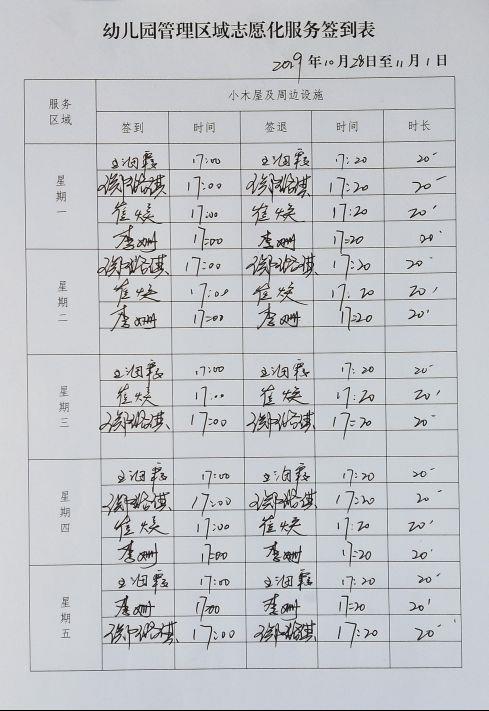 幼儿园管理区域志愿化服务签到表
2019年10月28日至11月1日
服务区域 小木屋及周边设施
签到 时间 签退 时间 时长
星期一
17:00 17:20 20'
17:00 17:20 20'
崔焕 17:00 崔焕 17:20 20'
李姗 17:00 李姗 17:20 20'
星期二
17:00 17:20 20'
崔焕 17:00 崔焕 17:20 20'
李姗 17:00 李姗 17:20 20'
星期三
17:00 17:20 20'
崔焕 17:00 崔焕 17:20 20'
17:00 17:20 20'
星期四
17:00 17:20 20'
17:00 17:20 20'
崔焕 17:00 崔焕 17:20 20'
李姗 17:00 李姗 17:20 20'
星期五
17:00 17:20 20'
李姗 17:00 李姗 17:20 20'
17:00 17:20 20'